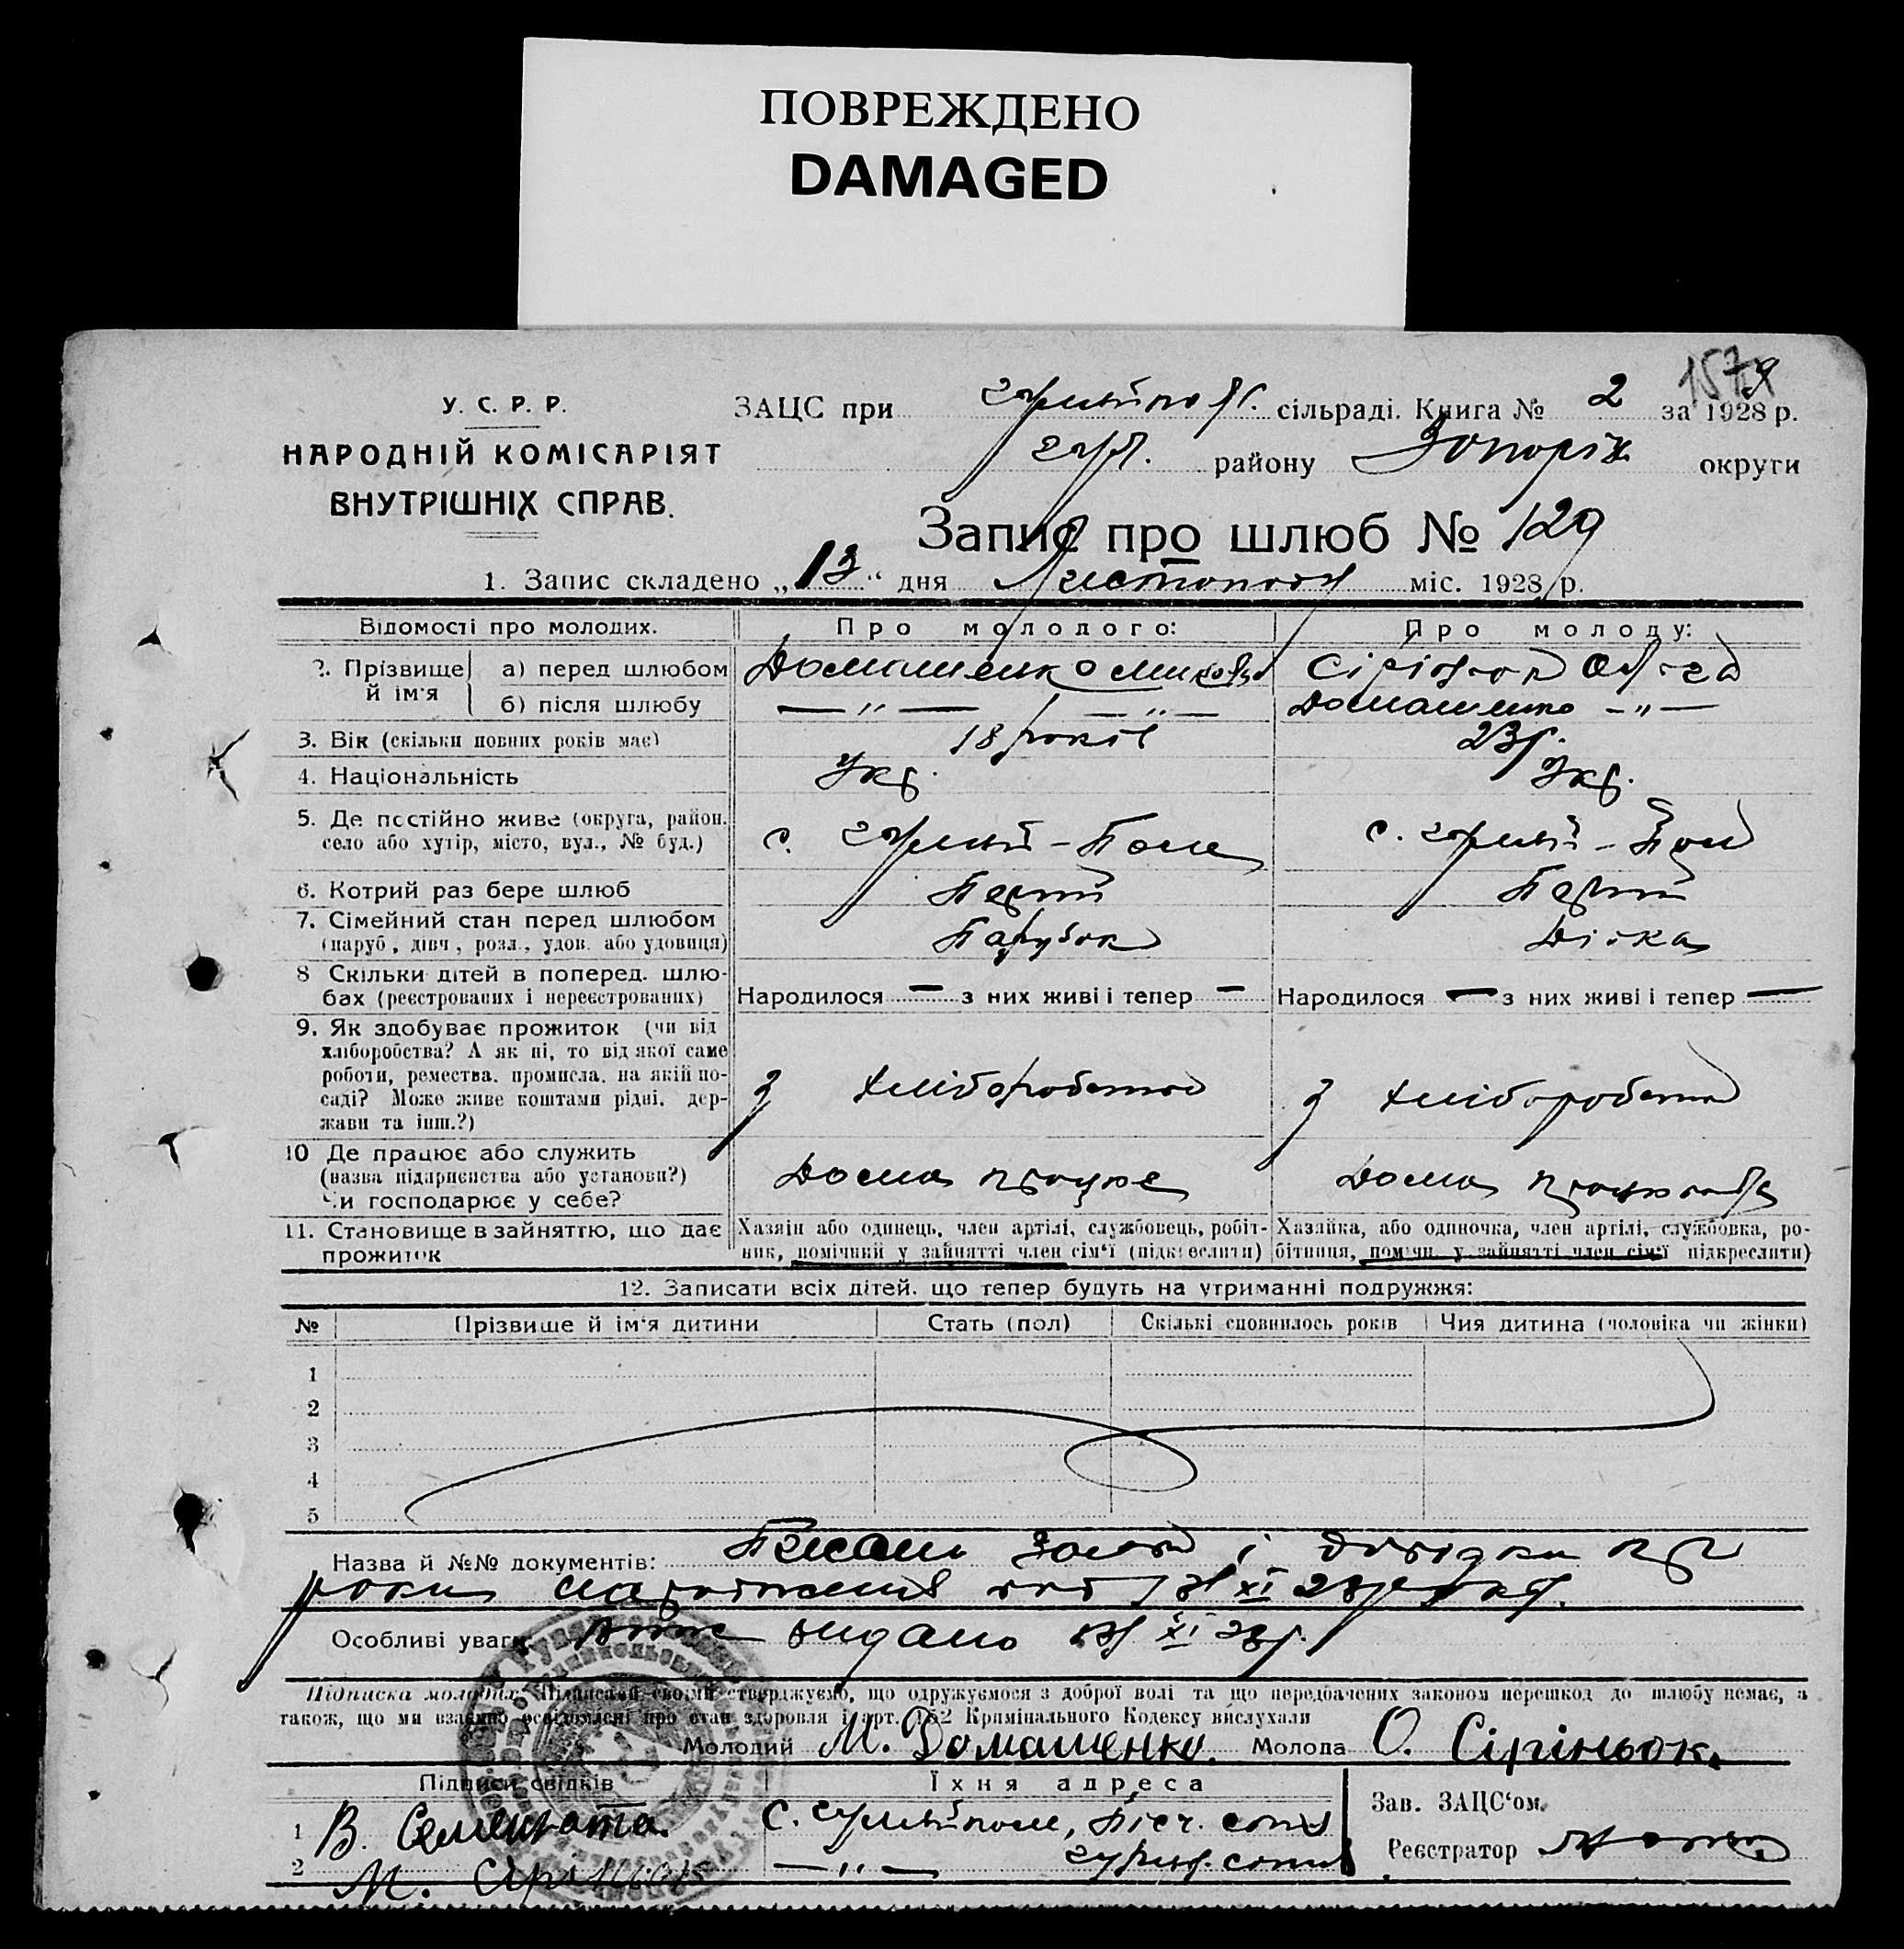 ПОВРЕЖДЕНО
DAMAGED
У. С. Р. Р.
НАРОДНІЙ КОМІСАРІЯТ
ВНУТРІШНІХ СПРАВ.
ЗАЦС при сільраді. Книга № 2 за 1928 р.
району округи
Запис про шлюб № 129
1. Запис складено „13“ дня Листопада міс. 1928 р.
Відомості про молодих. Про молодого: Про молоду:
2. Прізвище й ім'я
а) перед шлюбом Домашенко Микола
б) після шлюбу — „ — — „ — Домашенко — „ —
3. Вік (скільки повних років має) 18 років 23 р.
4. Національність Укр. Укр.
5. Де постійно живе (округа, район, с. Гуляй-Поле с. Гуляй-Поле
село або хутір, місто, вул., № буд.)
6. Котрий раз бере шлюб
7. Сімейний стан перед шлюбом Парубок Дівка
(паруб., дівч., розл., удов. або удовиця)
8 Скільки дітей в поперед. шлю-
бах (реєстрованих і нереєстрованих) Народилося — з них живі і тепер — Народилося — з них живі і тепер —
9. Як здобуває прожиток (чи від
хліборобства? А як ні, то від якої саме
роботи, ремества, промисла, на якій по- З хліборобства З хліборобства
саді? Може живе коштами рідні, дер-
жави та інш.?)
10 Де працює або служить
(назва підприємства або установи?) Дома працює Дома
Чи господарює у себе?
11. Становище в зайняттю, що дає Хазяїн або одинець, член артілі, службовець, робіт- Хазяйка, або одиночка, член артілі, службовка, ро-
прожиток ник, помічний у зайнятті член сім'ї (підкреслити) бітниця, помічн. у зайнятті член сім'ї підкреслити)
12. Записати всіх дітей, що тепер будуть на утриманні подружжя:
№ Прізвище й ім'я дитини Стать (пол) Скількі сповнилось років Чия дитина (чоловіка чи жінки)
1
2
3
4
5
Назва й №№ документів: і довідки
роки народження XI 28
Особливі уваги: видано XI 28 р.
Підписка молодих: Підписами своїми стверджуємо, що одружуємося з доброї волі та що передбачених законом перешкод до шлюбу немає, а
також, що ми взаємно освідомлені про стан здоровля і арт. 152 Кримінального Кодексу вислухали
Молодий М. Домашенко. Молода О. Сіріньок.
Підписи свідків Їхня адреса
Зав. ЗАЦС'ом.
1 В. с. Гуляйполе,
Реєстратор
2 М. — „ —